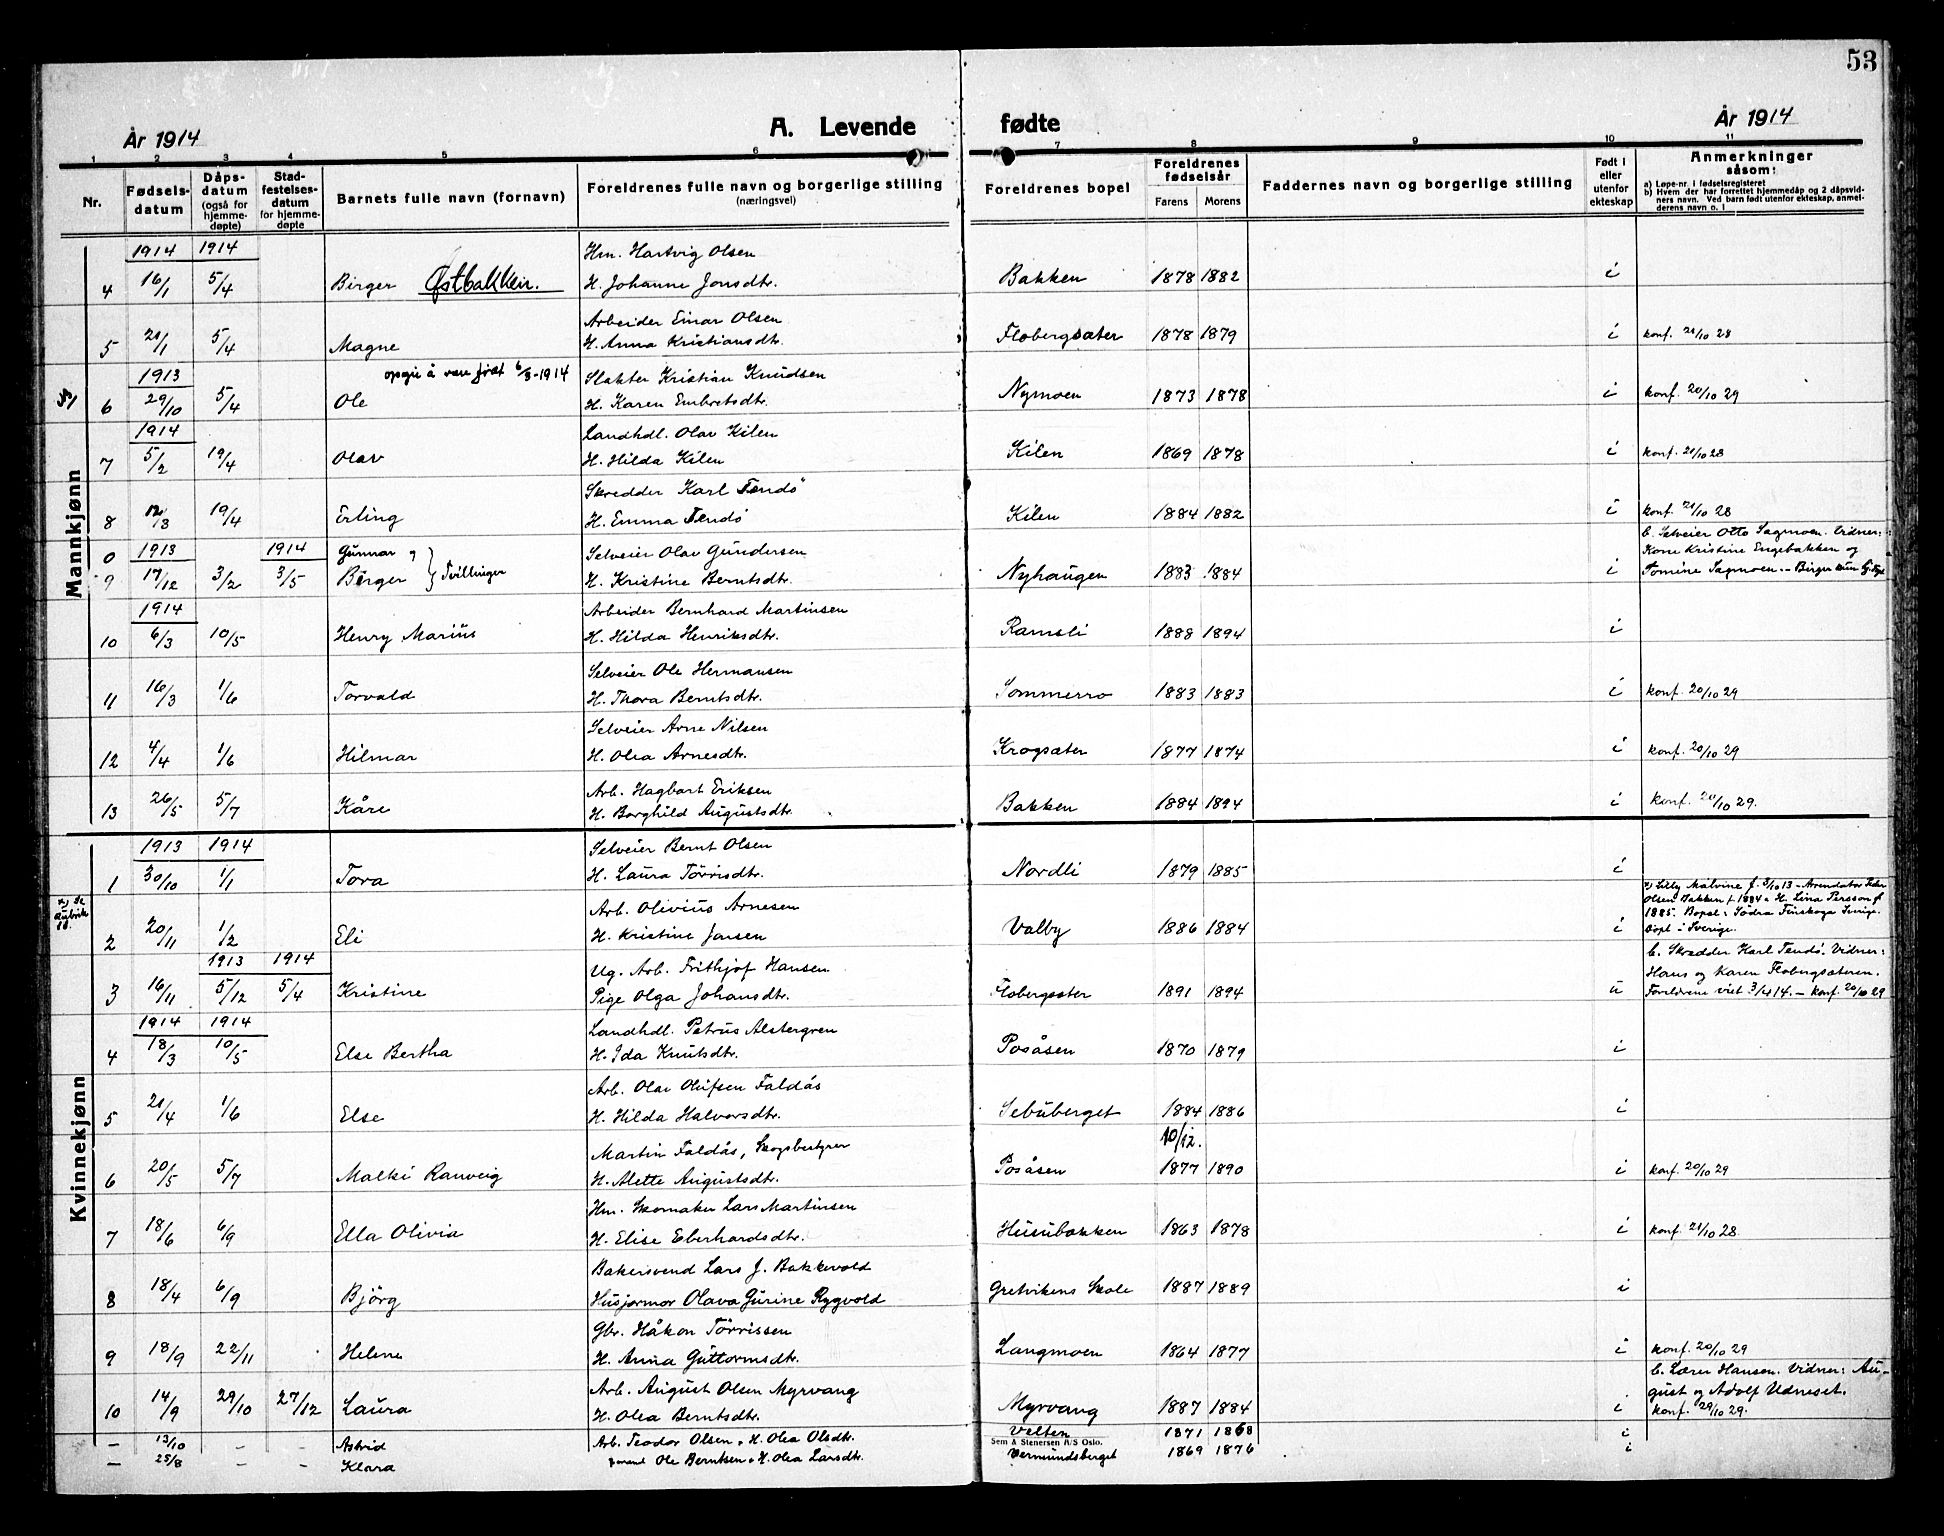 53
År 1914
A. Levende fødte
År 1914
1 2 3 4 5 6 7 8 9 10 11
Nr.
Fødsels-
datum
Dåps-
datum
(også for
hjemme-
døpte)
Stad-
festelses-
datum
for hjemme-
døpte
Barnets fulle navn (fornavn)
Foreldrenes fulle navn og borgerlige stilling
(næringsvei)
Foreldrenes bopel
Foreldrenes
fødselsår
Farens Morens
Faddernes navn og borgerlige stilling
Født i
eller
utenfor
ekteskap
Anmerkninger
såsom:
a) Løpe-nr. i fødselsregisteret
b) Hvem der har forrettet hjemmedåp og 2 dåpsvid-
ners navn. Ved barn født utenfor ekteskap, anmel-
derens navn o. l
Mannkjønn
1914 1914 Hm. Hartvig Olsen
4 16/1 5/4 Birger Østbakken. H. Johanne Jonsdtr. Bakken 1878 1882 i
Arbeider Einar Olsen
5 21/1 5/4 Magne H. Anna Kristiansdtr. Flobergsæter 1878 1879 i konf. 21/10 28
1913 opgir å være født 6/3-1914 Slakter Kristian Knudsen
6 29/10 5/4 Ole H. Karen Embretsdtr. Nymoen 1873 1878 i konf. 20/10 29
1914 Landhdl. Olav Kilen
7 5/2 19/4 Olav H. Hilda Kilen Kilen 1869 1878 i konf. 21/10 28
Skredder Karl Tendö
8 12/3 19/4 Erling H. Emma Tendö Kilen 1884 1882 i konf. 21/10 28
b. Selveier Otto Sagmoen. Vidner:
0 1913 1914 Gunnar Selveier Olav Gundersen Kone Kristine Engebakken og
9 17/12 3/2 3/5 Birger } Tvillinger H. Kristine Berntsdtr. Nyhaugen 1883 1884 i Tomine Sagmoen. - Birger
1914 Arbeider Bernhard Martinsen
10 6/3 10/5 Henry Marius H. Hilda Henriksdtr. Ramsli 1888 1894 i
Selveier Ole Hermansen
11 16/3 1/6 Torvald H. Thora Berntsdtr. Sommerro 1883 1883 i konf. 20/10 29
Selveier Arne Nilsen
12 4/4 1/6 Hilmar H. Olea Arnesdtr. Krogsæter 1877 1874 i konf. 20/10 29
Arb. Hagbart Eriksen
13 26/5 5/7 Kåre H. Borghild Augustsdtr. Bakken 1884 1894 i konf. 20/10 29.
Kvinnekjønn
1913 1914 Selveier Bernt Olsen
1 30/10 1/1 Tora H. Laura Törrisdtr. Nordli 1879 1885 i
x) Lilly Malvine f. 3/10 13 - Arendator Peder
Olsen Bakken f. 1884 & H. Lina Persson f
Arb. Olivius Arnesen 1885. Bopel: Södra Finskoga Sverige.
2 20/11 1/2 Eli H. Kristine Jonsen Valby 1886 1884 i Döpt i Sverige.
1913 1914 Ug. Arb. Frithjof Hansen b. Skredder Karl Tendö. Vidner:
Hans og Karen Flobergsæteren.
3 16/11 5/12 5/4 Kristine Pige Olga Johansdtr. Flobergsæter 1891 1894 u Foreldrene viet 3/4 14. - konf. 20/10 29
1914 1914 Landhdl. Petrus Alstergren
4 18/3 10/5 Else Bertha H. Ida Knutsdtr. Posåsen 1870 1879 i
Arb. Olav Olufsen Faldås
5 21/4 1/6 Else H. Hilda Halvorsdtr. Sebuberget 1884 1886 i
Martin Faldås, Skogsbestyrer 10/12.
6 20/5 5/7 Malki Ranveig H. Alette Augustsdtr. Posåsen 1877 1890 i konf. 20/10 29
Hm. Skomaker Lars Martinsen
7 18/6 6/9 Ella Olivia H. Elise Eberhardsdtr. Husubakken 1863 1878 i konf. 21/10 28.
Bakersvend Lars J. Bakkevold
8 18/4 6/9 Björg Husjormor Olava Gurine Rygvold Gretvikens Skole 1887 1889 i
Gbr. Håkon Törrissen
9 18/9 22/11 Helene H. Anna Guttormsdtr. Langmoen 1864 1877 i konf. 20/10 29
b. Lærer Hansen. Vidner: Au-
Arb. August Olsen Myrvang gust og Adolf Udneset.
10 14/9 29/10 27/12 Laura H. Olea Berntsdtr. Myrvang 1887 1884 i konf. 29/10 29.
— 13/10 – – Astrid Arb. Teodor Olsen & H. Olea Olsdtr. Velten 1871 1868 i
Sem & Stenersen A/S Oslo.
— 25/8 – – Klara Ole Berntsen & H. Olea Larsdtr. Vermundsberget 1869 1876 i